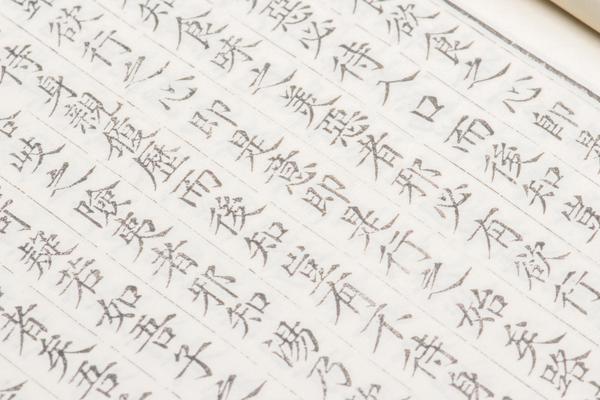 欲食之心即是
惡必待入口而後知豈
知食味之美惡者邪必有欲行
欲行之心即是意即是行之始矣路
待身親履歷而後知豈有不待身
岐之險夷者邪知湯乃
疑若如吾子之
者矣吾